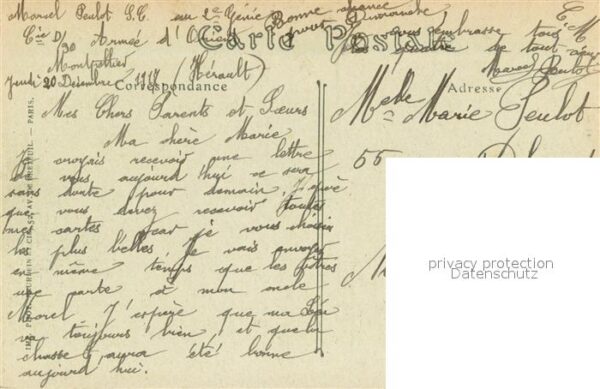 Marcel Peulot S.C. au 2e Génie
Cie D/30 Armée d'Orient
Montpellier (Hérault)
Jeudi 20 Décembre
Bonne chance
pour Dimanche
vous embrasse tous
quatre de tout
Marcel Peulot
Carte Postale
Correspondance
Adresse
Mes Chers Parents et Soeurs
Ma chère Marie
Je croyais recevoir une lettre
de vous aujourd'hui ce sera
sans doute pour demain. J'espère
que vous devez recevoir toutes
mes cartes car je vous choisis
les plus belles. Je vais envoyer
en même temps que les autres
une carte à mon oncle
Morel. J'espère que ma
va toujours bien, et que la
chasse aura été bonne
aujourd'hui.
Melle Marie Peulot
55
PARIS.
privacy protection
Datenschutz